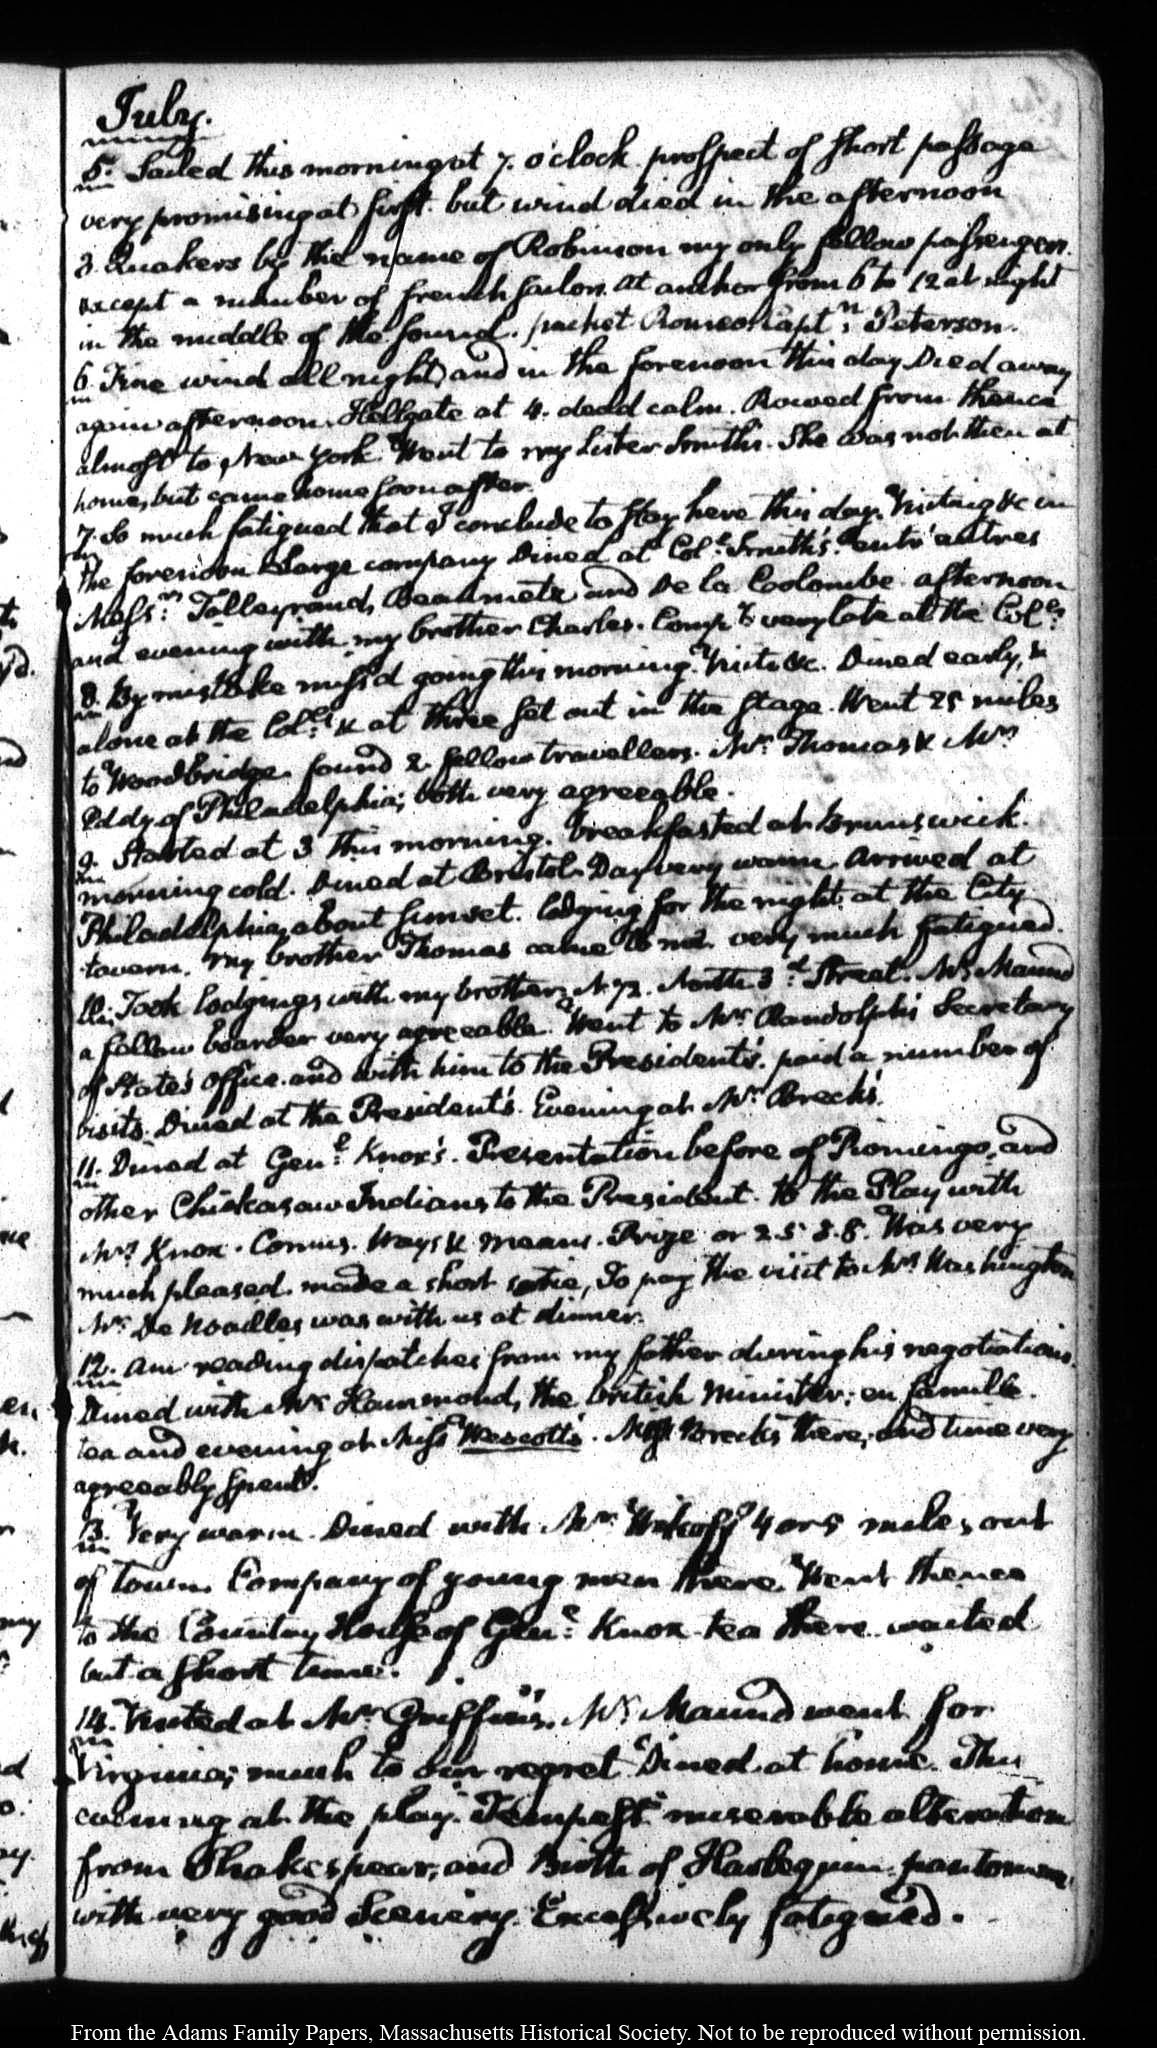 July.
5. Sailed this morning at 7. o'clock. prospect of short passage
very promising at first. but wind died in the afternoon
3. Quakers by the name of Robinson my only fellow passengers.
except a number of french sailors. At anchor from 6 to 12 at night
in the middle of the sound. packet Romeo Captn. Peterson.
6. Fine wind all night, and in the forenoon this day. Died away
again afternoon. Hellgate at 4. dead calm. Rowed from thence
almost to, New York. Went to my Sister Smith's. She was not then at
home, but came home soon after.
7. So much fatigued that I conclude to stay here this day. Visiting &c in
the forenoon. Large company Dined at Coll. Smith's. entr'autres
Messrs. Talleyrand, Beaumetz and De la Coolombe. afternoon
and evening with my brother Charles. Compy. very late at the Colls.
8. By mistake miss'd going this morning. Visits &c. Dined early, &
alone at the Colls. & at three set out in the stage. Went 25 miles
to Woodbridge. found 2 fellow travellers. Mr. Thomas & Mr.
Eddy of Philadelphia; both very agreeable.
9. Started at 3 this morning. breakfasted at Brunswick.
morning cold. Dined at Bristol. Day very warm. Arrived at
Philadelphia, about sunset. lodging for the night at the City
tavern. My brother Thomas came to me. very much fatigued.
10. Took lodgings with my brother, N. 72. North 3d. Street. Mr. Maund
a fellow boarder very agreeable. Went to Mr. Randolph's Secretary
of State's office. and with him to the President's. paid a number of
visits. Dined at the President's. Evening at Mr. Breck's.
11. Dined at Genl. Knox's. Presentation before of Piomingo, and
other Chickasaw Indians to the President. to the Play with
Mrs. Knox. Comus. Ways & means. Prize or 2. 5 3. 8. Was very
much pleased. made a short sotie, To pay the visit to Mrs. Washington
Mr. De Noailles was with us at dinner.
12. Am reading dispatches from my father during his negotiations.
Dined with Mr. Hammond, the british Minister; en famille.
tea and evening at Miss Wescott's. Miss Breck's there; and time very
agreeably spent.
13. Very warm. Dined with Mr. Wikoff 4 or 5 miles out
of town. Company of young men there. Went thence
to the Country House of Genl. Knox. tea there. waited
but a short time.
14. Visited at Mr. Griffin's. Mr. Maund went for
Virginia; much to our regret. Dined at home. This
evening at the play. Tempest. miserable alteration
from Shakespear; and Birth of Harlequin. pantomime,
with very good Scenery. Excessively fatigued.
From the Adams Family Papers, Massachusetts Historical Society. Not to be reproduced without permission.